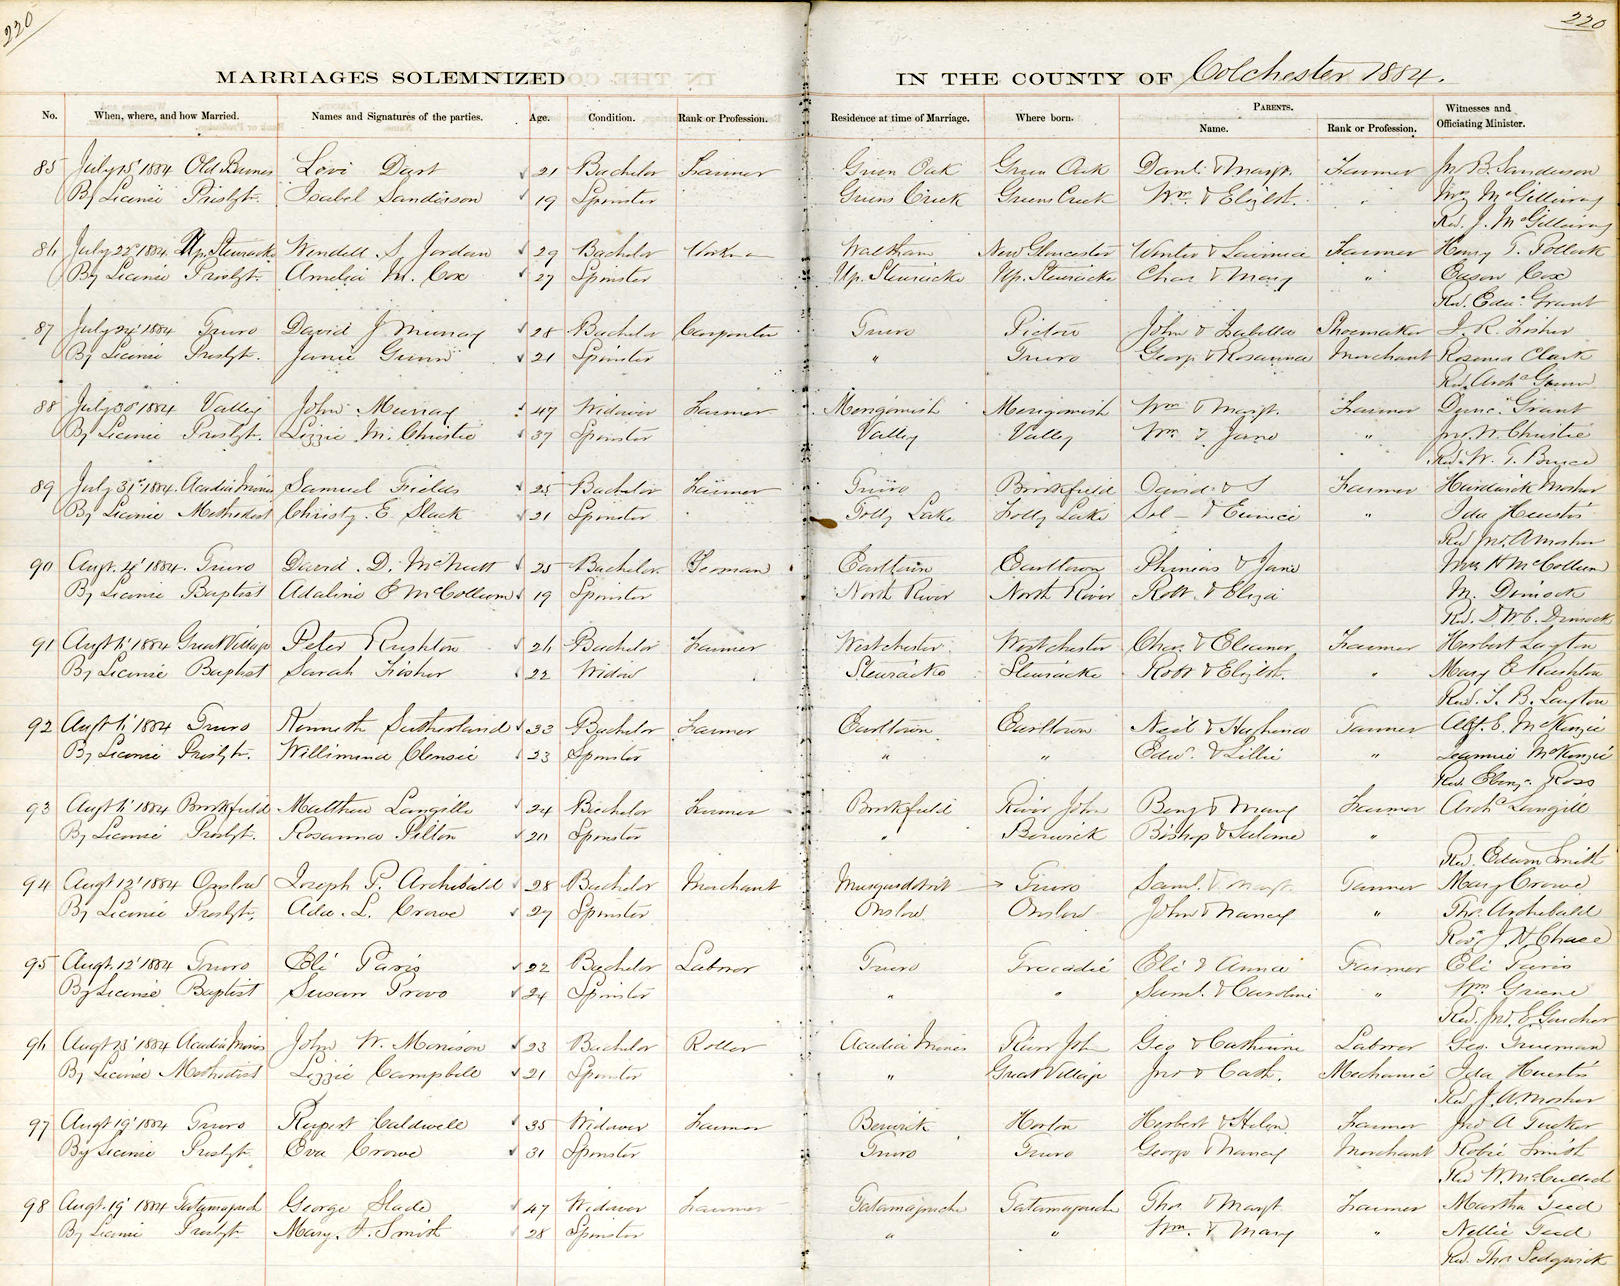 220 220
MARRIAGES SOLEMNIZED IN THE COUNTY OF Colchester 1884.
No. When, where, and how Married. Names and Signatures of the parties. Age. Condition. Rank or Profession. Residence at time of Marriage. Where born. PARENTS. Name. Rank or Profession. Witnesses and Officiating Minister.
85 July 15' 1884 Old Barnes Levi Dart 21 Bachelor Farmer Green Oak Green Oak Danl. & Margt. Farmer Jno B. Sanderson
By Licence Presbyt. Isabel Sanderson 19 Spinster Greens Creek Greens Creek Wm. & Elizbt. " Mrs McGillivray
Rev. J. McGillivray
86 July 22' 1884. Up. Stewiacke Wendell S Jordan 29 Bachelor Waltham New Gloucester Farmer Henry T. Pollock
By Licence Presbyt. Amelia M. Cox 27 Spinster Up. Stewiacke Up. Stewiacke Chas & Mary " Eason Cox
Rev. Edwd. Grant
87 July 24' 1884 Truro David J Murray 28 Bachelor Carpenter Truro Pictou John & Isabella Shoemaker J. R. Fisher
By Licence Presbyt. Janie Gunn 21 Spinster " Truro George & Rosanna Merchant Rosanna Clark
Rev. Archd Gunn
88 July 30' 1884 Valley John Murray 47 Widower Farmer Merigomish Merigomish Wm & Margt. Farmer Dunc. Grant
By Licence Presbyt. Lizzie M. Christie 37 Spinster Valley Valley Wm & Jane " Jno. W. Christie
Rev. W. T. Bruce
89 July 31' 1884. Acadia Mines Samuel Fields 25 Bachelor Farmer Truro Brookfield David & S Farmer Hardwick Mosher
By Licence Methodist Christy. E. Slack 21 Spinster Folly Lake Folly Lake Sol & Eunice " Ida Huestis
Rev Jno. A Mosher
90 Augt. 4' 1884. Truro David. D. McNutt 25 Bachelor. Yeoman Earltown Earltown Phineas & Jane Mrs H McCollum
By Licence Baptist Adaline E McCollum 19 Spinster North River North River Robt. & Eliza M. Dimock
Rev. D. W. C. Dimock
91 Augt 6' 1884 Great Village Peter Rushton 26 Bachelor Farmer Westchester Westchester Chas. & Eleanor Farmer Herbert Layton
By Licence Baptist Sarah Fisher 22 Widow Stewiacke Stewiacke Robt & Elizbt. " Mary E Rushton
Rev. T. B. Layton
92 Augt 6' 1884 Truro Kenneth Sutherland 33 Bachelor Farmer Earltown Earltown Neil & Farmer E. McKenzie
By Licence Presbyt. Willimina 23 Spinster " " Edw. & Lillie " Jeannie McKenzie
Rev. Ebenz. Ross
93 Augt 6' 1884 Brookfield Matthew Langille 24 Bachelor Farmer Brookfield River John Benj & Mary Farmer Archd Langill
By Licence Presbyt. Rosanna Pilton 20 Spinster " Berwick Bishop & Salome "
Rev. Edwin Smith
94 Augt 12' 1884 Onslow Joseph P. Archibald 28 Bachelor Merchant Musquodobit Truro Saml. & Margt. Tanner Mary Crowe
By Licence Presbyt. Ada. L. Crowe 27 Spinster Onslow Onslow John & Nancy " Thos. Archibald
Rev. J. H. Chase
95 Augt. 12' 1884 Truro Eli Paris 22 Bachelor Labour Truro Tracadie Eli & Anna Farmer Eli Paris
By Licence Baptist Susan Provo 24 Spinster " " Saml. & Caroline " Wm Greene
Rev. Jno. E. Goucher
96 Augt 13' 1884 Acadia Mines John W. Morrison 23 Bachelor Roller Acadia Mines River John Geo & Catherine Laborer Geo. Trueman
By Licence Methodist Lizzie Campbell 21 Spinster " Great Village Jno & Cath. Mechanic Ida Huestis
Rev. J. A. Mosher
97 Augt 19' 1884 Truro Rupert Caldwell 35 Widower Farmer Berwick Horton Herbert & Helen Farmer Jno A Tucker
By Licence Presbyt. Eva Crowe 31 Spinster Truro Truro George & Nancy Merchant Robie Smith
Rev W. McCulloch
98 Augt. 19' 1884 Tatamagouch George Slade 47 Widower Farmer Tatamagouche Tatamagouche Thos & Margt. Farmer Martha Teed
By Licence Presbyt Mary. J. Smith 28 Spinster " " Wm. & Mary " Nellie Teed
Rev. Thos Sedgwick